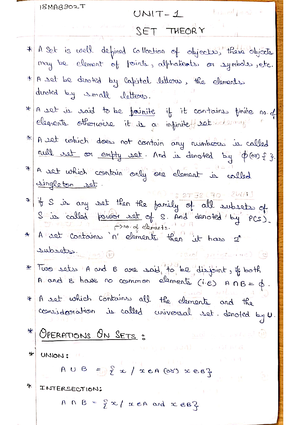 18MAB302T
UNIT-1
SET THEORY
* A Set is well defined collection of objects, these objects
may be element of points, alphabets or symbols, etc.
* A set be denoted by Capital letters, the elements
denoted by small letters.
* A set is said to be finite if it contains finite no. of
elements otherwise it is a infinite set
* A set which does not contain any numbers is called
null set or empty set. And is denoted by φ (or) { }.
* A set which contain only one element is called
singleton set.
* If S is any set then the family of all subsets of
S is called power set of S. And denoted by P(S).
→ no. of elements
* A set contains 'n' elements then it has 2ⁿ
subsets.
* Two sets A and B are said to be disjoint, if both
A and B have no common elements (i.e) A ∩ B = φ.
* A set which contains all the elements and the
consideration is called universal set. denoted by U
* OPERATIONS ON SETS :
* UNION:
A ∪ B = { x / x ∈ A (or) x ∈ B }
* INTERSECTION:
A ∩ B = { x / x ∈ A and x ∈ B }